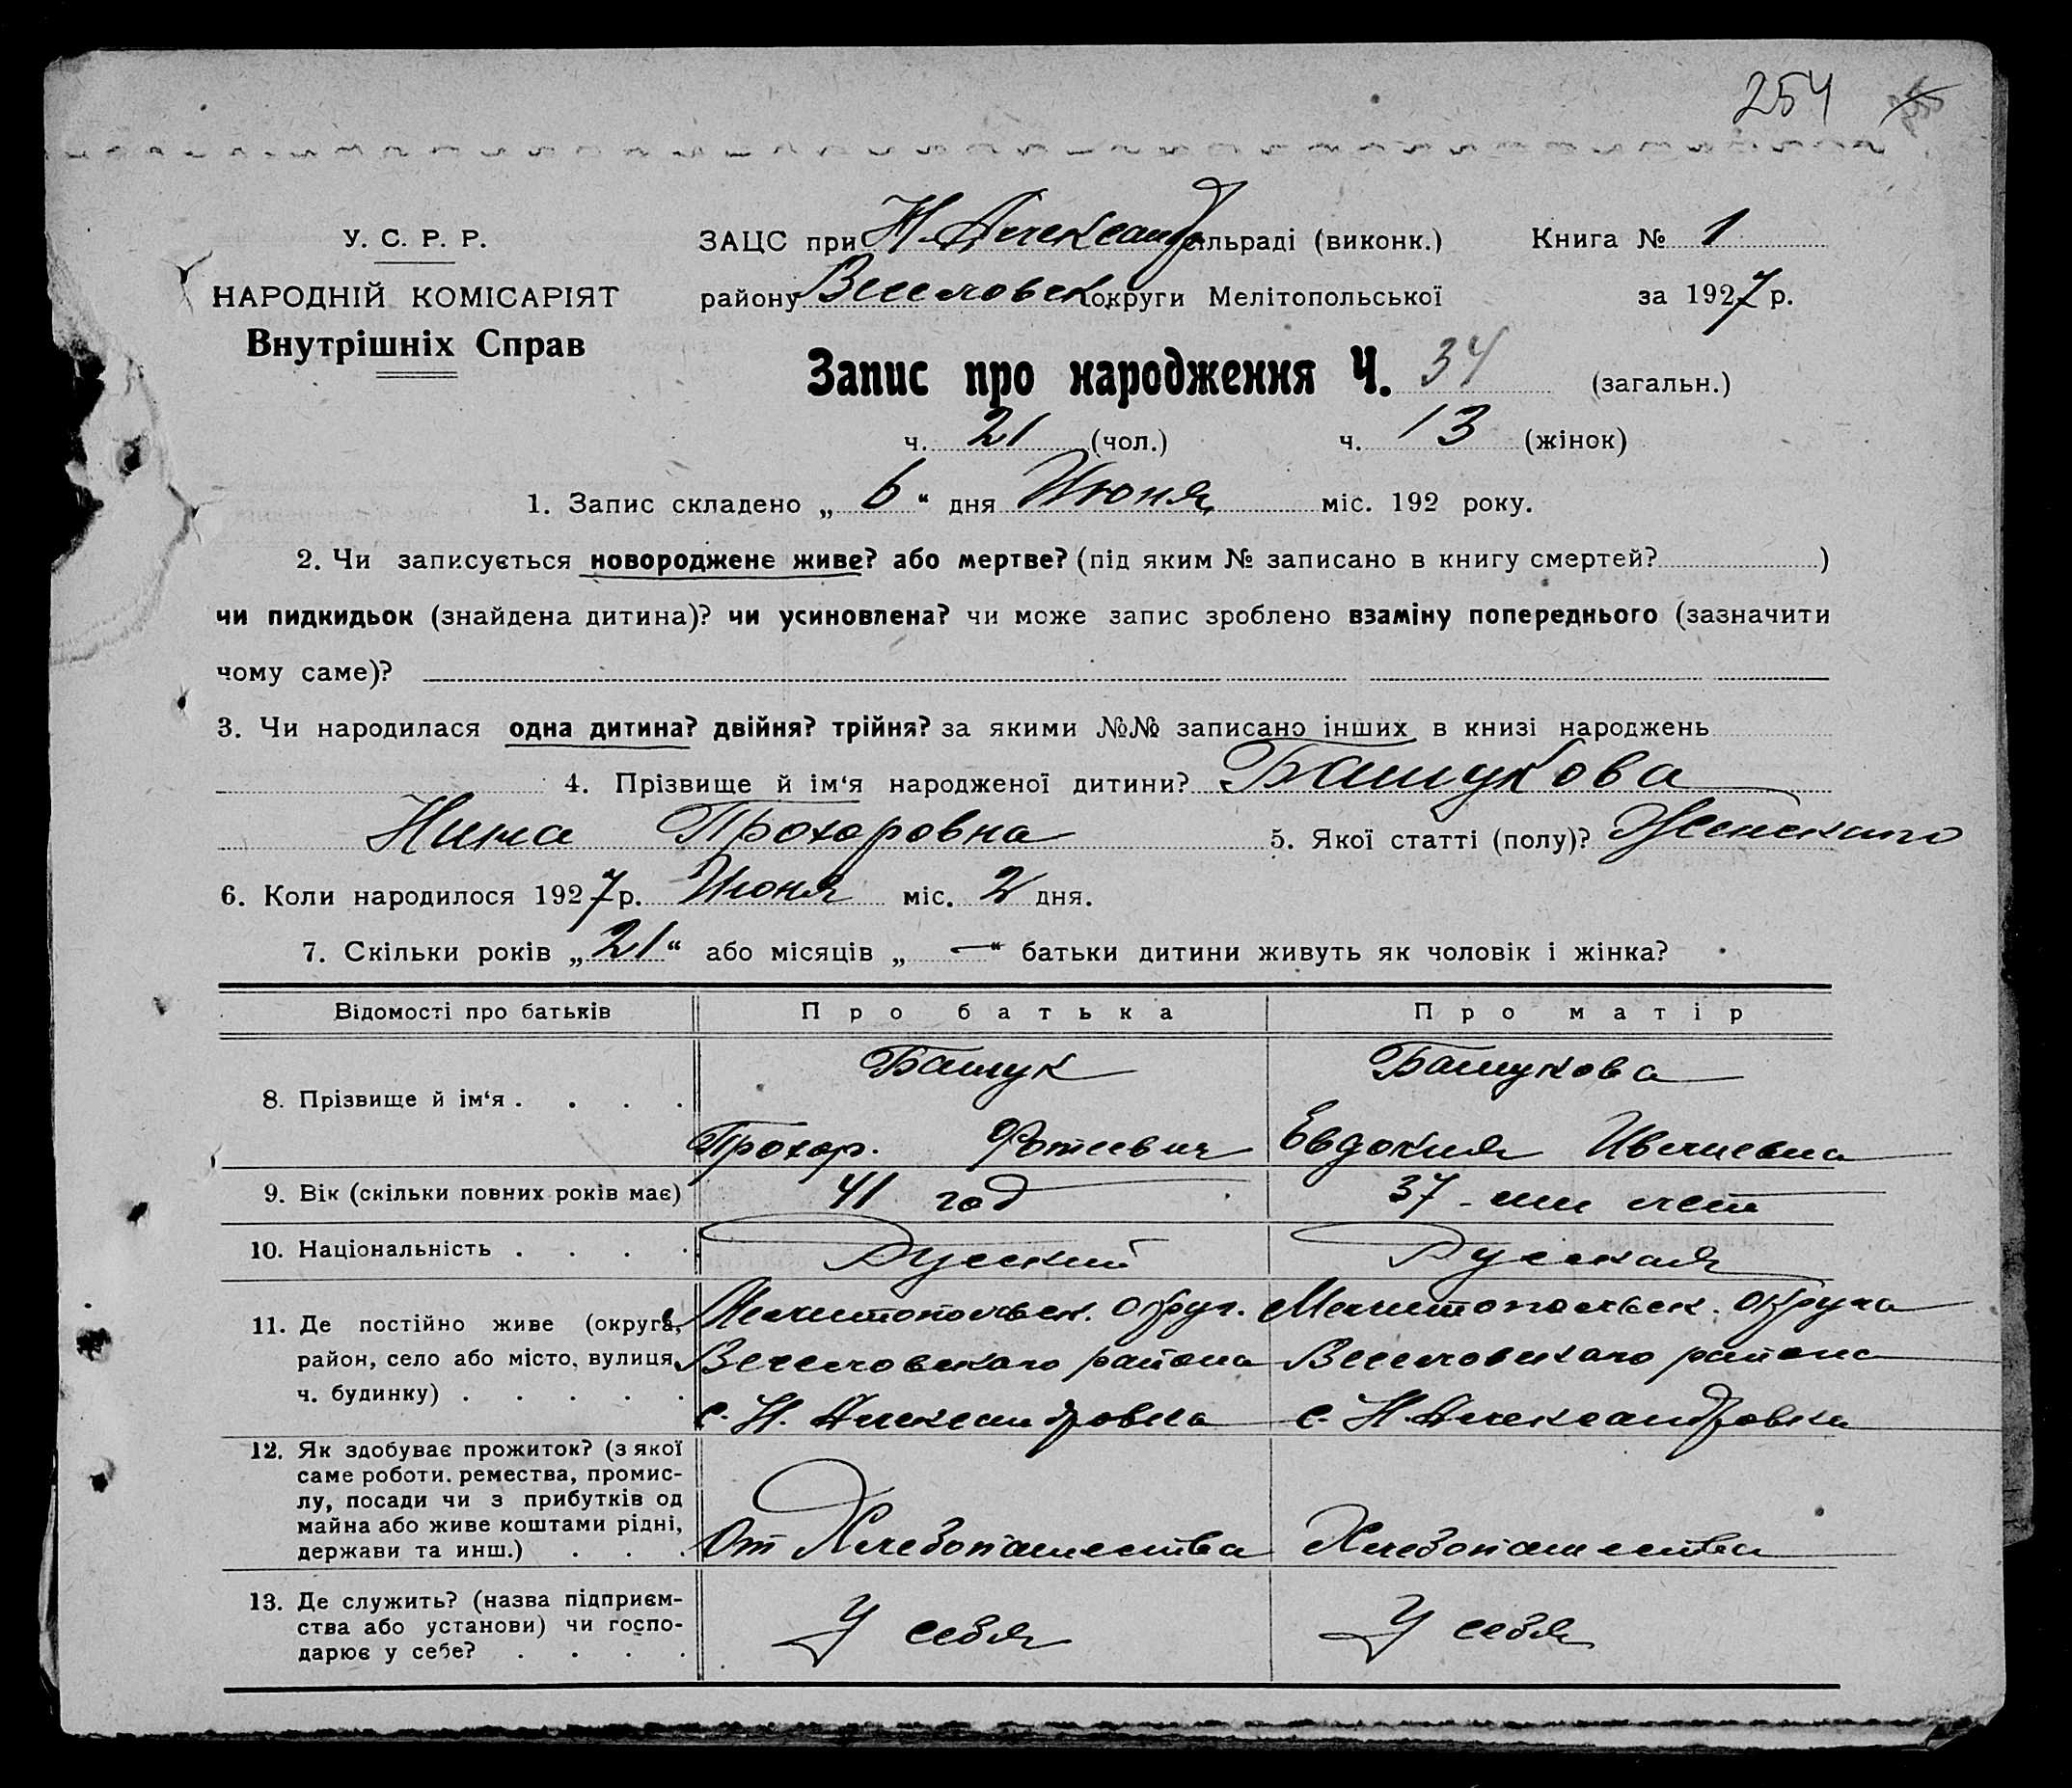 254
У. С. Р. Р.
НАРОДНІЙ КОМІСАРІЯТ
Внутрішніх Справ
ЗАЦС при Н. Александр сільраді (виконк.) Книга № 1
району Веселовск округи Мелітопольської за 1927 р.
Запис про народження Ч. 34 (загальн.)
ч. 21 (чол.) ч. 13 (жінок)
1. Запис складено „ 6 “ дня Июня міс. 192 року.
2. Чи записується новороджене живе? або мертве? (під яким № записано в книгу смертей? )
чи пидкидьок (знайдена дитина)? чи усиновлена? чи може запис зроблено взаміну попереднього (зазначити
чому саме)?
3. Чи народилася одна дитина? двійня? трійня? за якими №№ записано інших в книзі народжень
4. Прізвище й ім‘я народженої дитини? Башукова
Нина Прохоровна 5. Якої статті (полу)? Женскаго
6. Коли народилося 1927 р. Июня міс. 2 дня.
7. Скільки років „ 21 “ або місяців „ — “ батьки дитини живуть як чоловік і жінка?
Відомості про батьків Про батька Про матір
8. Прізвище й ім‘я . . . . Башук Башукова
Прохор. Фотиевич Евдокия
9. Вік (скільки повних років має) 41 год 37 - ми лет
10. Національність . . . . Русский Русская
11. Де постійно живе (округа, Мелитопольск. округ. Мелитопольск. округа
район, село або місто, вулиця, Веселовскаго района Веселовскаго района
ч. будинку) . . . . . с. Н. Александровка с. Н. Александровка
12. Як здобуває прожиток? (з якої
саме роботи. ремества, промис-
лу, посади чи з прибутків од
майна або живе коштами рідні,
держави та инш.) . . . От Хлебопашества Хлебопашества
13. Де служить? (назва підприєм-
ства або установи) чи госпо-
дарює у себе? . . . . У себя У себя